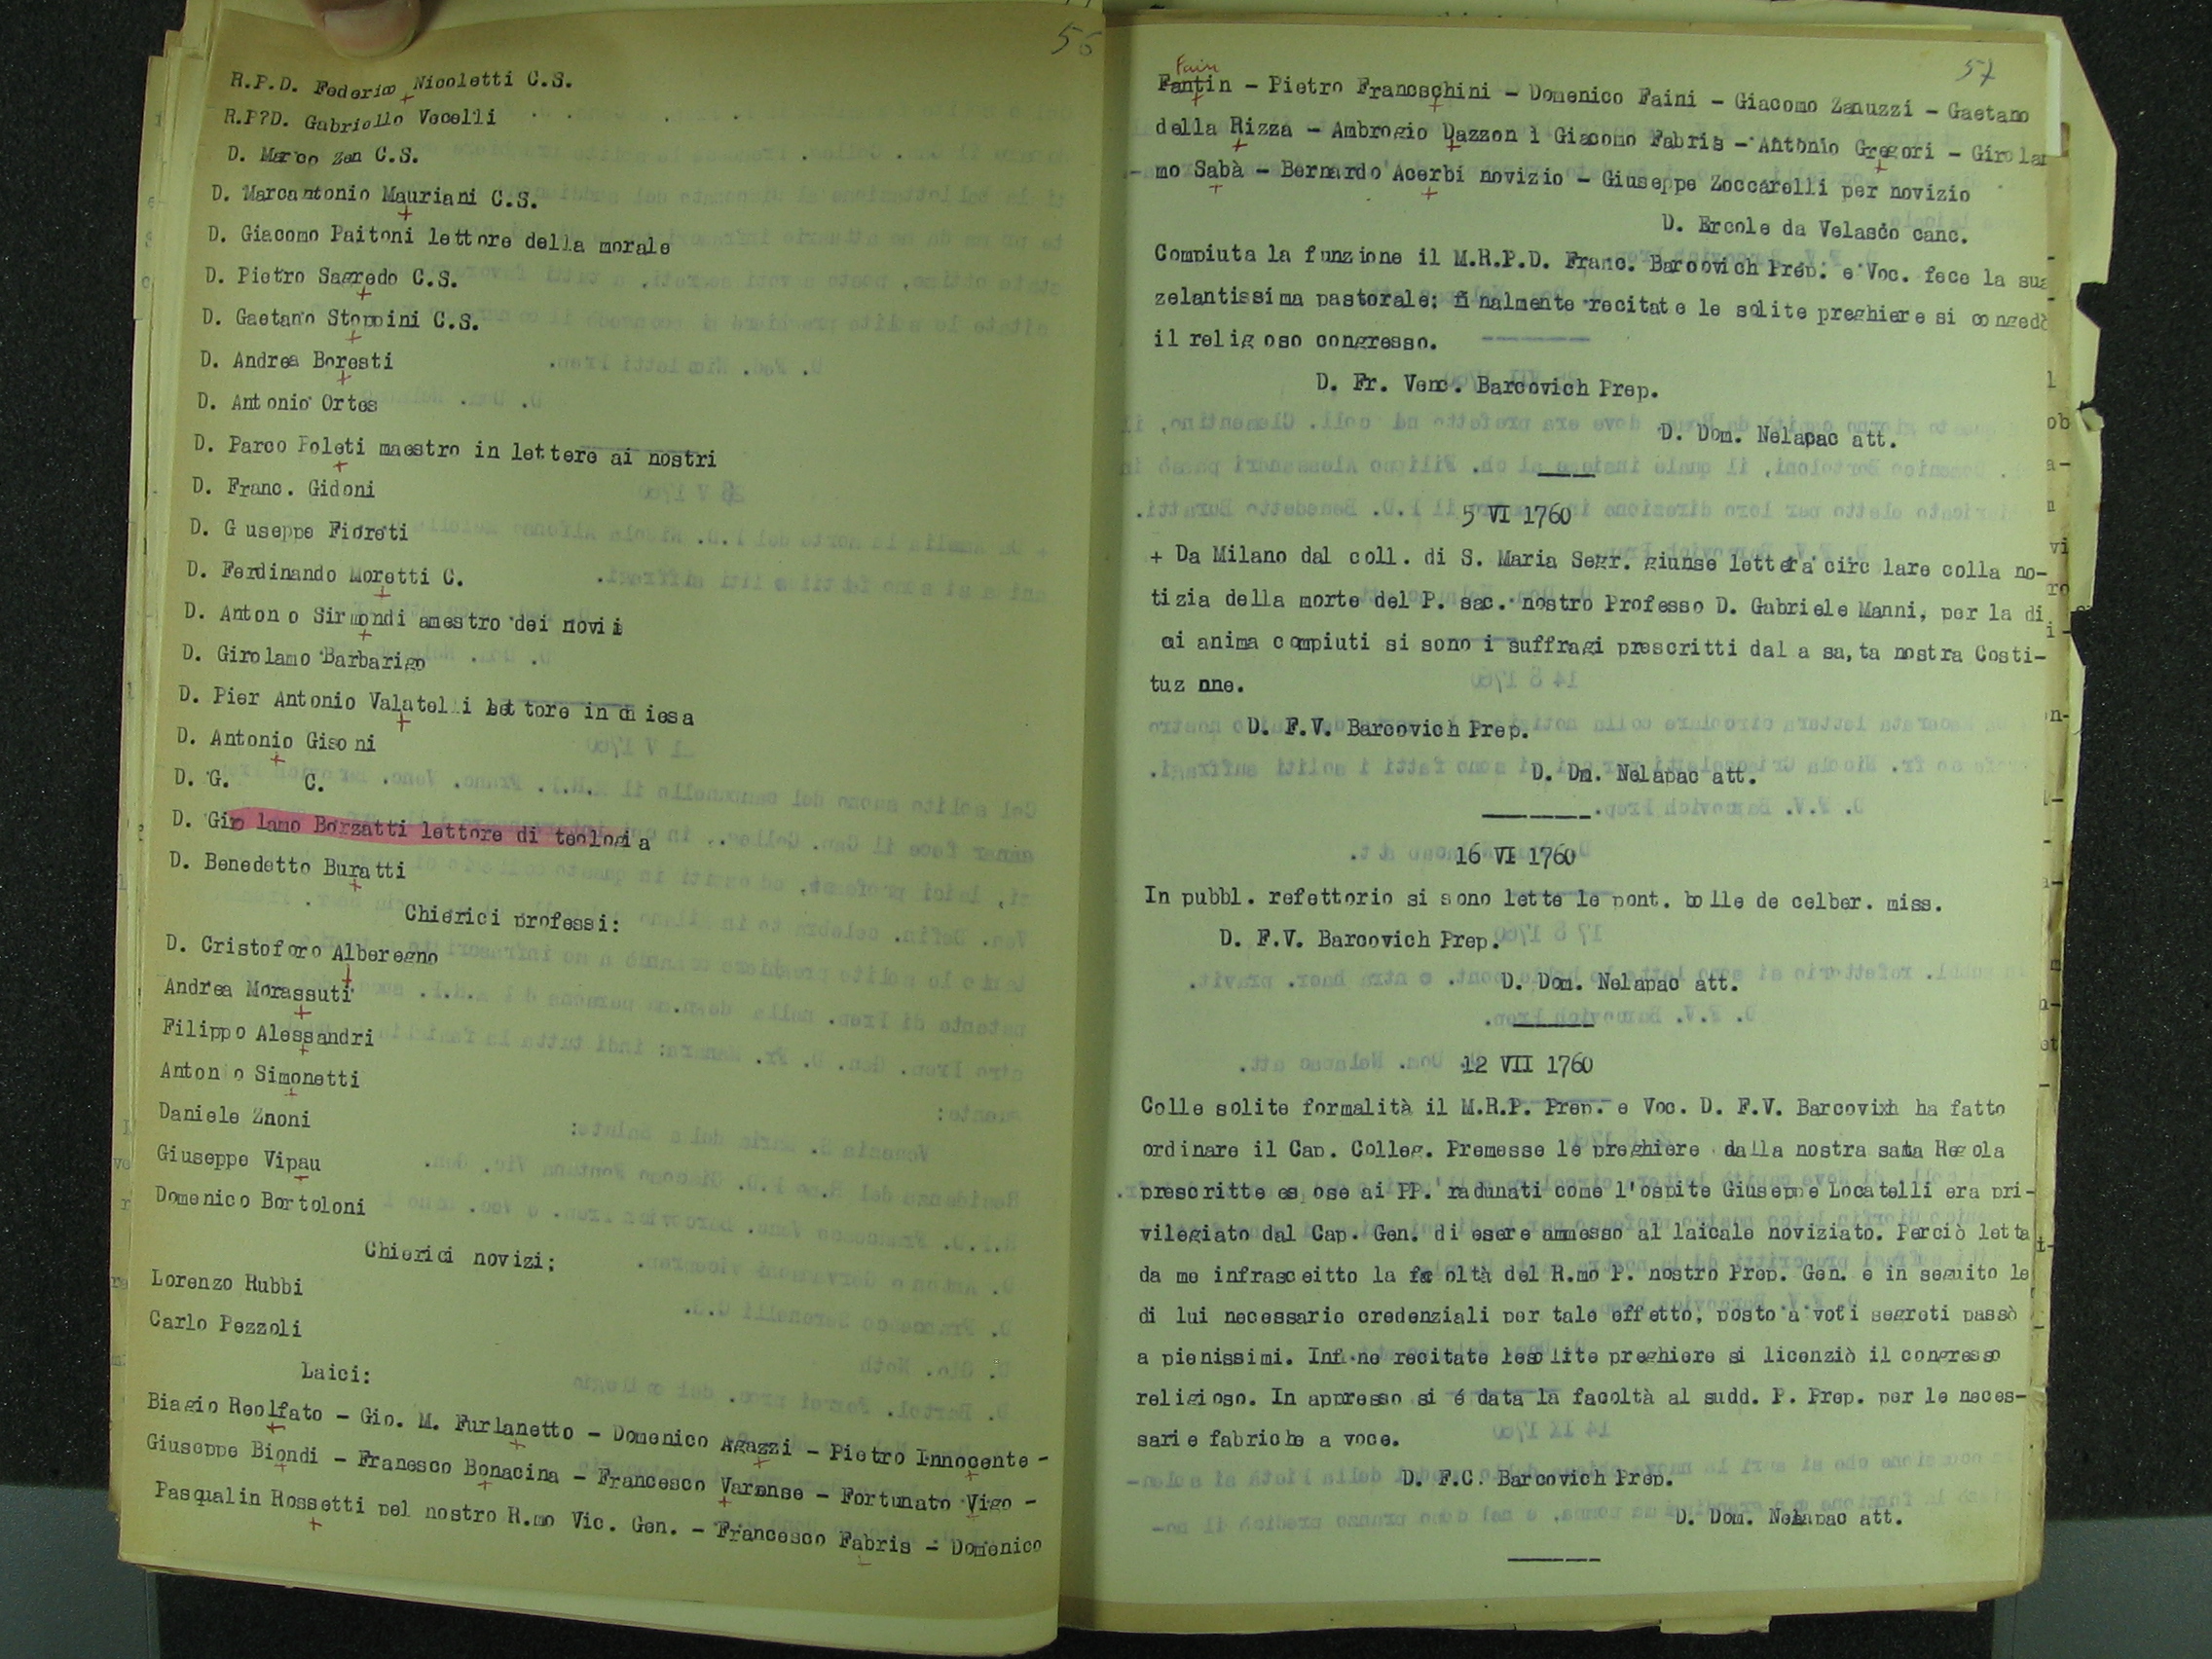 56
R.P.D. Federico Nicoletti C.S.
R.P?D. Gabriello Vecelli
D. Marco Zen C.S.
D. Marcantonio Mauriani C.S.
D. Giacomo Paitoni lettore della morale
D. Pietro Sagredo C.S.
D. Gaetano Stoppini C.S.
D. Andrea Boresti
D. Antonio Ortes
D. Parco Poleti maestro in lettere ai nostri
D. Franc. Gidoni
D. G useppe Fioreti
D. Ferdinando Moretti C.
D. Anton o Sirmondi amestro dei novii
D. Girolamo Barbarigo
D. Pier Antonio Valatelli lettore in chiesa
D. Antonio Gisoni
D. G. C.
D. Giro lamo Borzatti lettore di teologia
D. Benedetto Buratti
Chierici professi:
D. Cristoforo Alberegno
Andrea Morassuti
Filippo Alessandri
Antonio Simonetti
Daniele Znoni
Giuseppe Vipau
Domenico Bortoloni
Chierici novizi:
Lorenzo Rubbi
Carlo Pezzoli
Laici:
Biagio Reolfato - Gio. M. Furlanetto - Domenico Agazzi - Pietro Innocente -
Giuseppe Biondi - Franesco Bonacina - Francesco Varense - Fortunato Vigo -
Pasqualin Rossetti pel nostro R.mo Vic. Gen. - Francesco Fabris - Domenico
57
Fain
Fantin - Pietro Franceschini - Domenico Faini - Giacomo Zanuzzi - Gaetano
della Rizza - Ambrogio Dazzon i Giacomo Fabris - Antonio Gregori - Girolam
- mo Sabà - Bernardo Acerbi novizio - Giuseppe Zoccarelli per novizio
D. Ercole da Velasco canc.
Compiuta la funzione il M.R.P.D. Franc. Barcovich Prep. e Voc. fece la sua
zelantissima pastorale; finalmente recitate le solite preghiere si congedò
il relig oso congresso.
D. Fr. Venc. Barcovich Prep.
D. Dom. Nelapac att.
5 VI 1760
+ Da Milano dal coll. di S. Maria Segr. giunse lettera circ lare colla no-
tizia della morte del P. sac. nostro Professo D. Gabriele Manni, per la di
cui anima compiuti si sono i suffragi prescritti dal a sa,ta nostra Costi-
tuz one.
D. F.V. Barcovich Prep.
D. Dm. Nelapac att.
16 VI 1760
In pubbl. refettorio si sono lette le pont. bolle de celber. miss.
D. F.V. Barcovich Prep.
D. Dom. Nelapac att.
12 VII 1760
Colle solite formalità il M.R.P. Prep. e Voc. D. F.V. Barcovixh ha fatto
ordinare il Cap. Colleg. Premesse le preghiere dalla nostra santa Regola
prescritte es ose ai PP. radunati come l'ospite Giuseppe Locatelli era pri-
vilegiato dal Cap. Gen. di esere ammesso al laicale noviziato. Perciò letta
da me infrasceitto la facoltà del R.mo P. nostro Prep. Gen. e in seguito le
di lui necessarie credenziali per tale effetto, posto a voti segreti passò
a pienissimi. Infine recitate lesolite preghiere si licenziò il congresso
religioso. In appresso si é data la facoltà al sudd. P. Prep. per le neces-
sarie fabriche a voce.
D. F.C. Barcovich Prep.
D. Dom. Nelapac att.